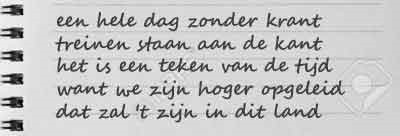 een hele dag zonder krant
treinen staan aan de kant
het is een teken van de tijd
want we zijn hoger opgeleid
dat zal 't zijn in dit land